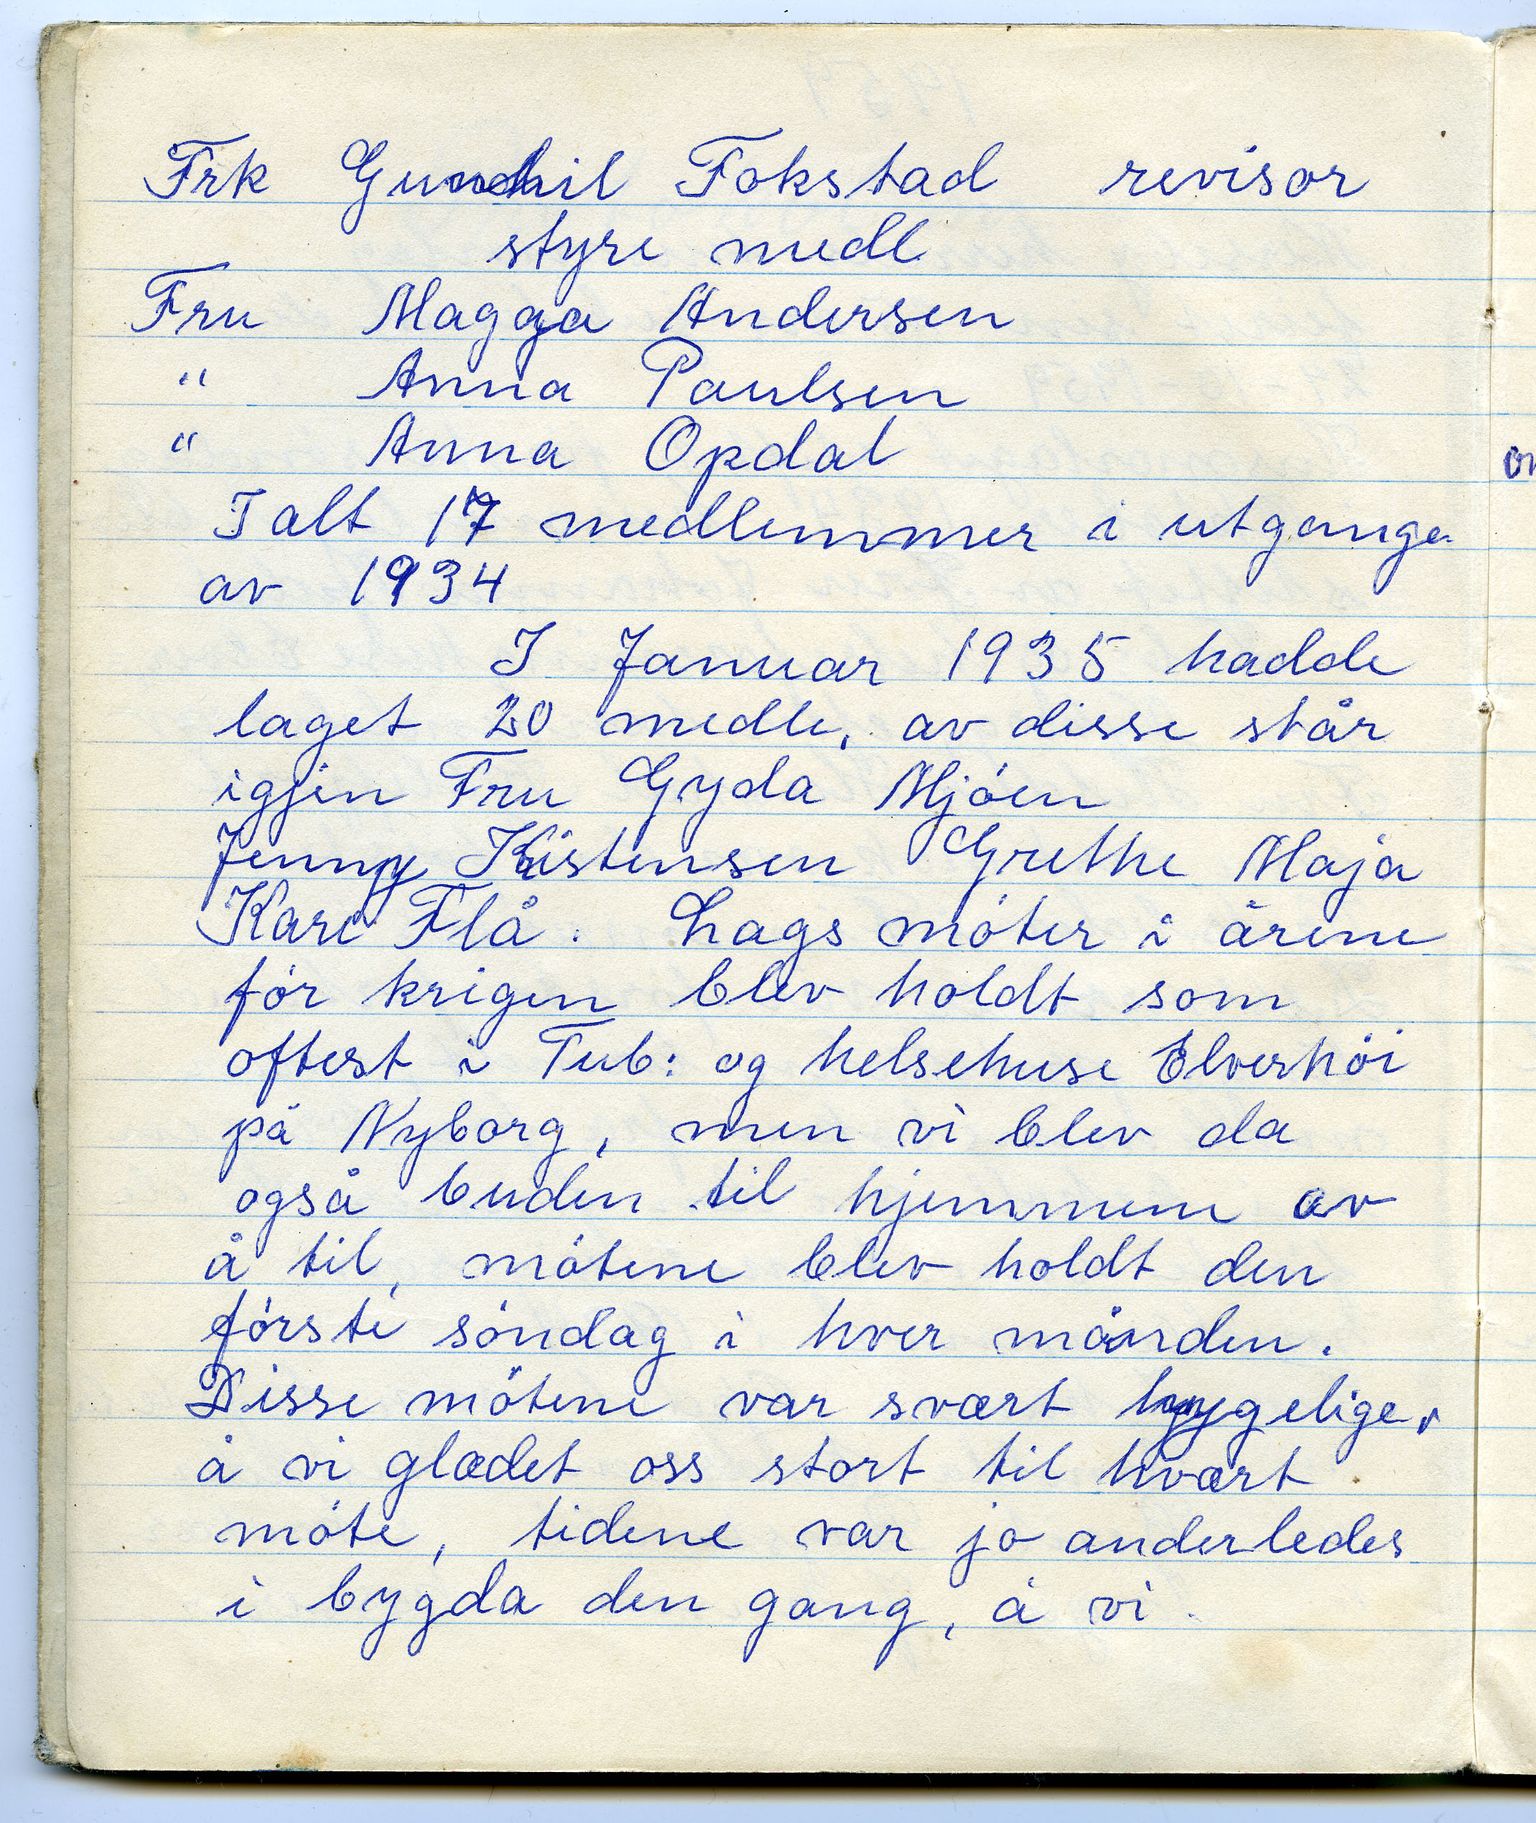 Frk Gunhil Fokstad revisor
styre medl
Fru Magga Andersen
" Anna Paulsen
" Anna Opdal
I alt 17 medlemmer i utgange
av 1934
I Januar 1935 hadde
laget 20 medle, av disse står
igjen Fru Gyda Mjóen
Jenny Kistensen Grethe Maja
Kari Flå. Lags móter i årene
fór krigen blev holdt som
oftest i Tub: og helsehuse Elverhói
på Nyborg, men vi blev da
også buden til hjemmene av
å til, mótene blev holdt den
fórste sóndag i hver månden.
Disse mótene var svært hygelige,
å vi glædet oss stort til hvært
móte, tidene var jo anderledes
i bygda den gang, å vi